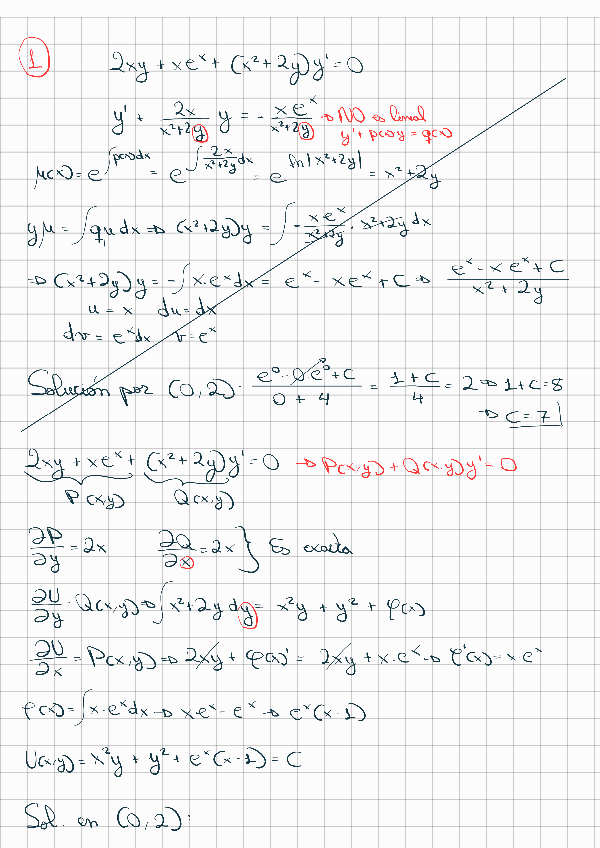 1 2xy + xe^x + (x²+2y)y' = 0
y' + 2x/(x²+2y) y = - xe^x/(x²+2y) → NO es lineal
y' + p(x)y = q(x)
μ(x) = e^∫p(x)dx = e^∫2x/(x²+2y) dx = e^ln|x²+2y| = x²+2y
yμ = ∫qμ dx ⇒ (x²+2y)y = ∫ - xe^x/(x²+2y) · x²+2y dx
⇒ (x²+2y)y = -∫x·e^x dx = e^x - xe^x + C ⇒ (e^x - xe^x + C)/(x²+2y)
u = x du = dx
dv = e^x dx v = e^x
Solución por (0,2): (e^0 - 0e^0 + C)/(0+4) = (1+C)/4 = 2 ⇒ 1+C=8
⇒ C=7
2xy + xe^x + (x²+2y)y' = 0 → P(x,y) + Q(x,y)y' = 0
P(x,y) Q(x,y)
∂P/∂y = 2x ∂Q/∂x = 2x } Es exacta
∂U/∂y = Q(x,y) ⇒ ∫x²+2y dy = x²y + y² + φ(x)
∂U/∂x = P(x,y) ⇒ 2xy + φ(x)' = 2xy + x·e^x ⇒ φ'(x) = xe^x
φ(x) = ∫x·e^x dx ⇒ xe^x - e^x ⇒ e^x(x-1)
U(x,y) = x²y + y² + e^x(x-1) = C
Sol. en (0,2):